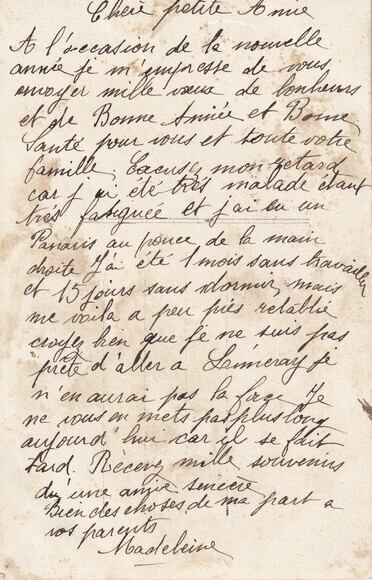 Chère petite Amie
A l'occasion de la nouvelle
année je m'empresse de vous
envoyer mille vœux de bonheurs
et de Bonne Année et Bonne
Santé pour vous et toute votre
famille, Excusez mon retard
car j'ai été très malade étant
très fatiguée et j'ai eu un
Panaris au pouce de la main
droite J'ai été 1 mois sans travailler
et 15 jours sans dormir, mais
me voila a peu près rétablie
croyez bien que je ne suis pas
prête d'aller a je
n'en aurai pas la face Je
ne vous en mets pas plus long
aujourd'hui car il se fait
tard. Recevez mille souvenirs
d'une amie sincère
Bien des choses de ma part a
vos parents
Madeleine